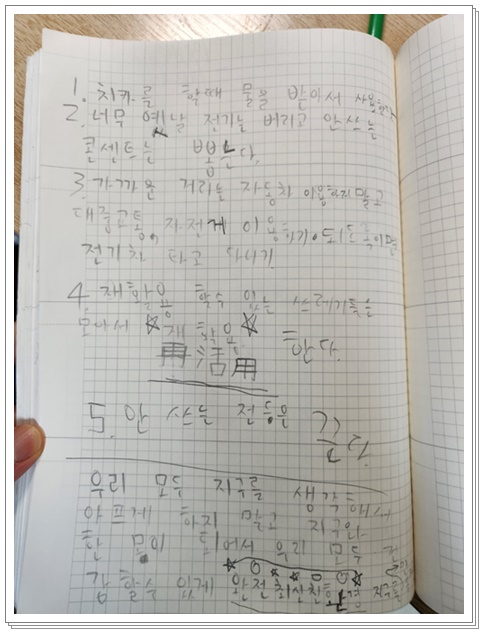 1. 치카를 할때 물을 받아서 사용한다
2. 너무 옛날 전기는 버리고 안쓰는
콘센트는 뽑는다.
3. 가까운 거리는 자동차 이용하지말고
대중교통, 자전게 이용하기, 되도록이면
전기차 타고 다니기
4. 재활용 할수 있는 쓰레기들은
모아서 ☆재활용☆ 한다.
再活用
5. 안 쓰는 전등은 끈다.
우리 모두 지구를 생각해서
아프게 하지 말고 지구와
한 몸이 되어서 우리 모두
감 할수 있게 완전최신친환경 지구를